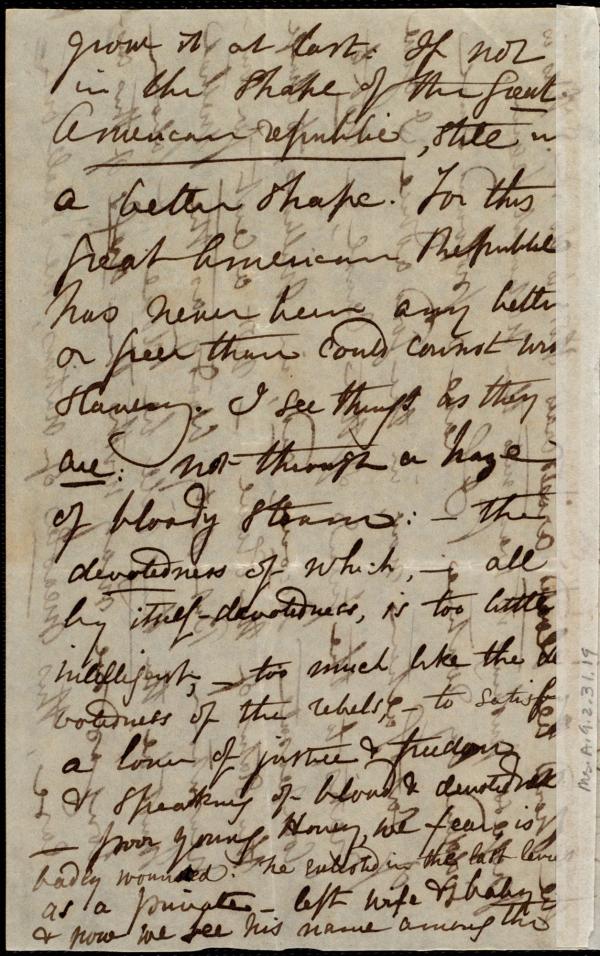 grow it at last: If not
in the shape of the Great
American republic, still in
a better shape. For this
great American Republic
has never been any better
or freer than could consist wi
slavery. I see things as they
are: not through a haze
of bloody steam: – the
devotedness of which, – all
by itself – devotedness, is too little
intelligent, – too much like the de
votedness of the rebels, – to satisfy
a lover of justice & freedom
& speaking of blood & devotedness
– poor young Honey, we fear, is
badly wounded. he enlisted in the last levy
as a private – left wife & baby
& now we see his name among the
Ms. A. 9. 2. 31. 19